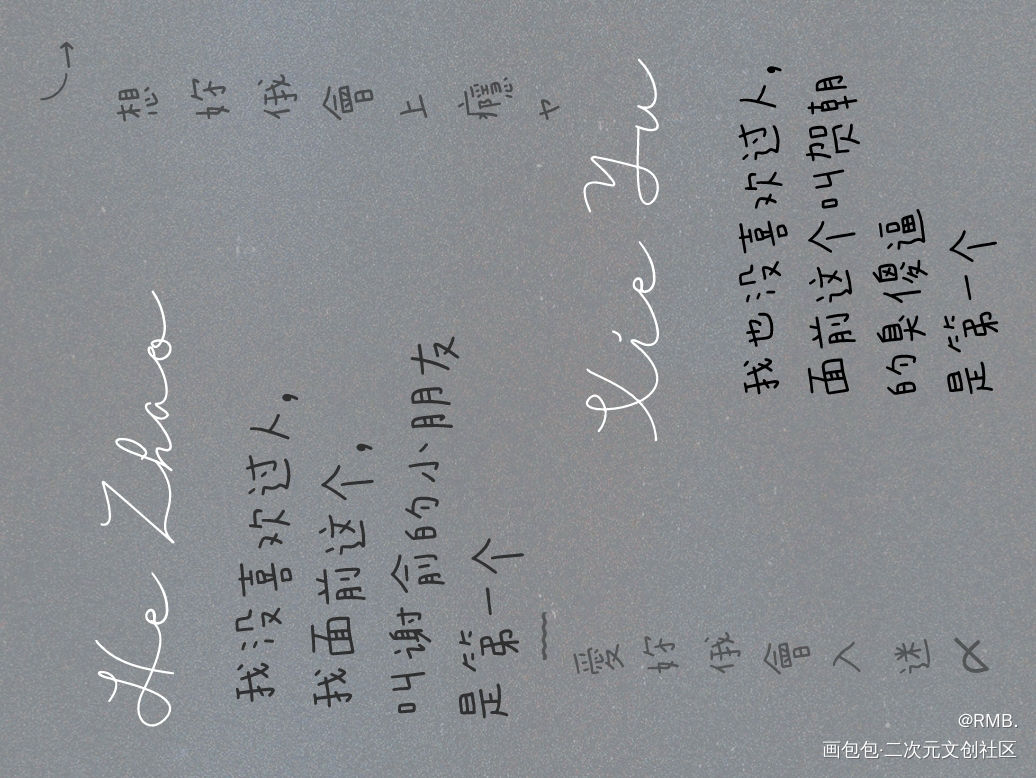 想好俄會上癮ㄘ
He Zhao
我没喜欢过人，
我面前这个，
叫谢俞的小朋友
是第一个
Xie Yu
我也没喜欢过人，
面前这个叫贺朝
的臭傻逼
是第一个
愛好俄會入迷
@RMB.
画包包·二次元文创社区